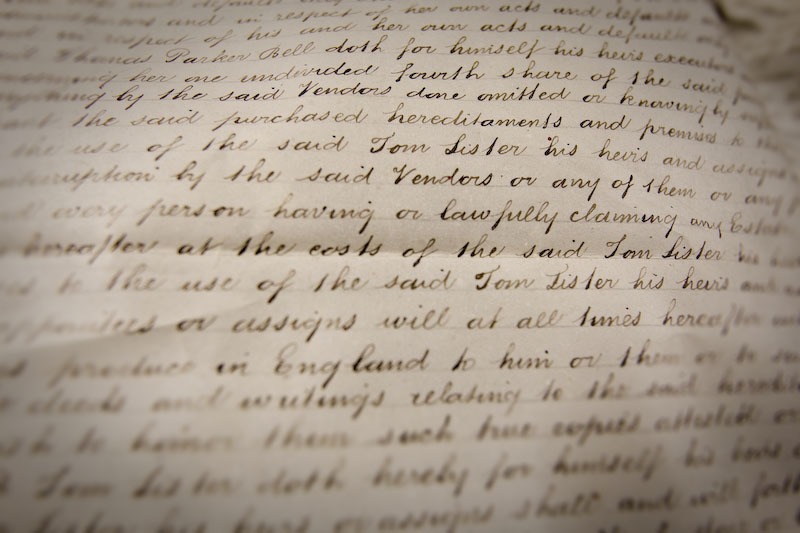 and in respect of her own acts and defaults
in respect of his and her own acts and defaults
Thomas Parker Bell doth for himself his heirs executors
her one undivided fourth share of the said
by the said Vendors done omitted or knowingly
the said purchased hereditaments and premises to
the use of the said Tom Lister his heirs and assigns
by the said Vendors or any of them or any
every person having or lawfully claiming any Estate
hereafter at the costs of the said Tom Lister his
to the use of the said Tom Lister his heirs and
or assigns will at all times hereafter
produce in England to him or them or to
deeds and writings relating to the said
to him or them such true copies attested or
Tom Lister doth hereby for himself his heirs
Lister his heirs or assigns shall and will